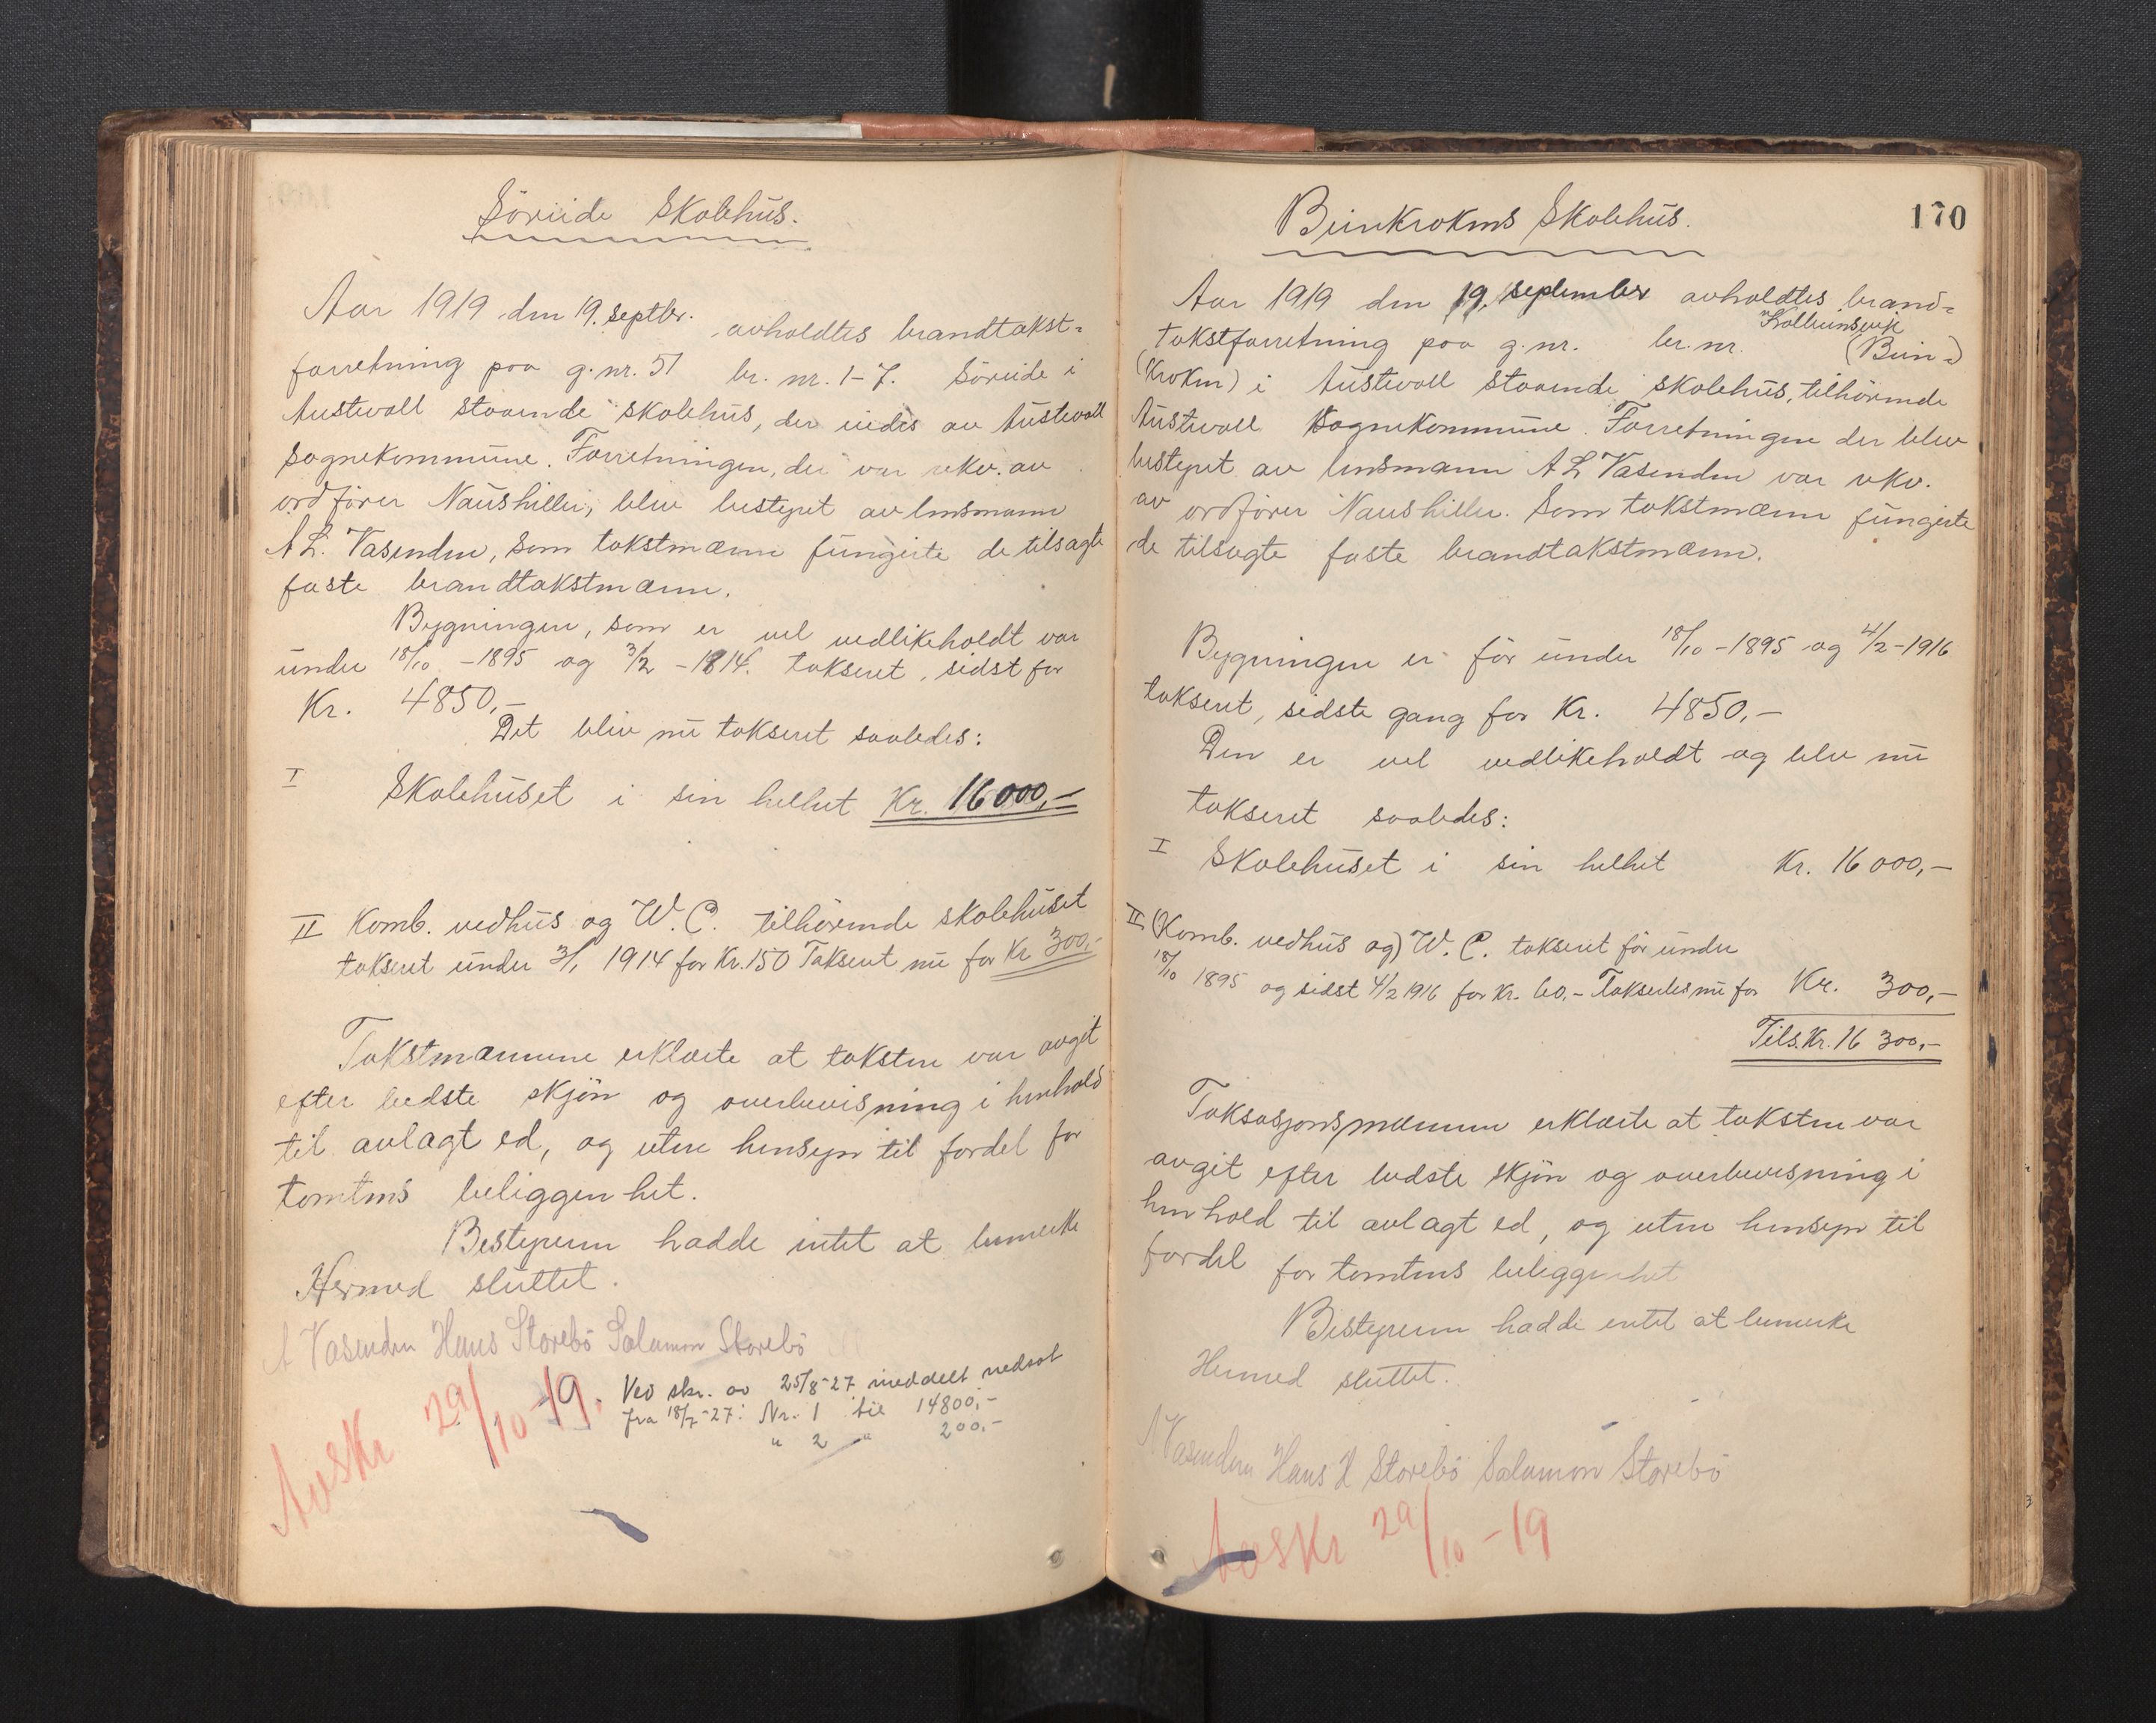 Söreide Skolehus.
Aar 1919 den 19. septbr. avholdtes brandtakst-
forretning paa g.nr. 51 br. nr. 1-7. Söreide i
Austevoll staaende skolehus, der eiedes av Austevoll
Sognekommune. Forretningen, der var rekv. av
ordförer Naushiller, blev bestyret av lensmann
A L. Vasenden, som takstmænn fungerte de tilsagte
faste brandtakstmænn.
Bygningen, som er vel vedlikeholdt var
under 18/10 -1895 og 3/2 -1814. taksert, sidst for
Kr. 4850,-
Det blev nu taksert saaledes:
I Skolehuset i sin helhet Kr. 16000,-
II Komb. vedhus og W.C. tilhörende skolehuset
taksert under 3/1 1914 for Kr. 150 Taksert nu for Kr 300,-
Takstmænnene erklærte at taksten var avgit
efter bedste skjön og overbevisning i henhold
til avlagt ed, og uten hensyn til fordel for
tomtens beliggenhet.
Bestyreren hadde intet at bemerke
Hermed sluttet.
A Vasenden Hans Storebö Salamon Storebö
Avskr 29/10-19.
Ved skr. av 25/8-27 meddelt nedsat
fra 18/7-27: Nr. 1 til 14800,-
" 2 " 200,-
170
Beinkrokens Skolehus.
Aar 1919 den 19. september avholdtes brand-
Kolbeinsvik
takstforretning paa g.nr. br.nr. (Bein-)
(kroken) i Austevoll staaende skolehus, tilhörende
Austevoll Sognekommune. Forretningen der blev
bestyret av lensmann A L Vasenden var rekv.
av ordförer Naushiller. Som takstmænn fungerte
de tilsagte faste brandtakstmænn.
Bygningen er för under 18/10-1895 og 4/2-1916
taksert, sidste gang for Kr. 4850,-
Den er vel vedlikeholdt og blev nu
taksert saaledes:
I Skolehuset i sin helhet Kr. 16 000,-
II (Komb. vedhus og) W.C. taksert för under
18/10 1895 og sidst 4/2 1916 for Kr. 60,- Taksertes nu for Kr. 300,-
Tils. Kr. 16 300,-
Taksasjonsmænnene erklærte at taksten var
avgit efter bedste skjön og overbevisning i
henhold til avlagt ed, og uten hensyn til
fordel for tomtens beliggenhet
Bestyreren hadde intet at bemerke
Hermed sluttet.
A Vasenden Hans H Storebö Salamon Storebö
Avskr 29/10-19